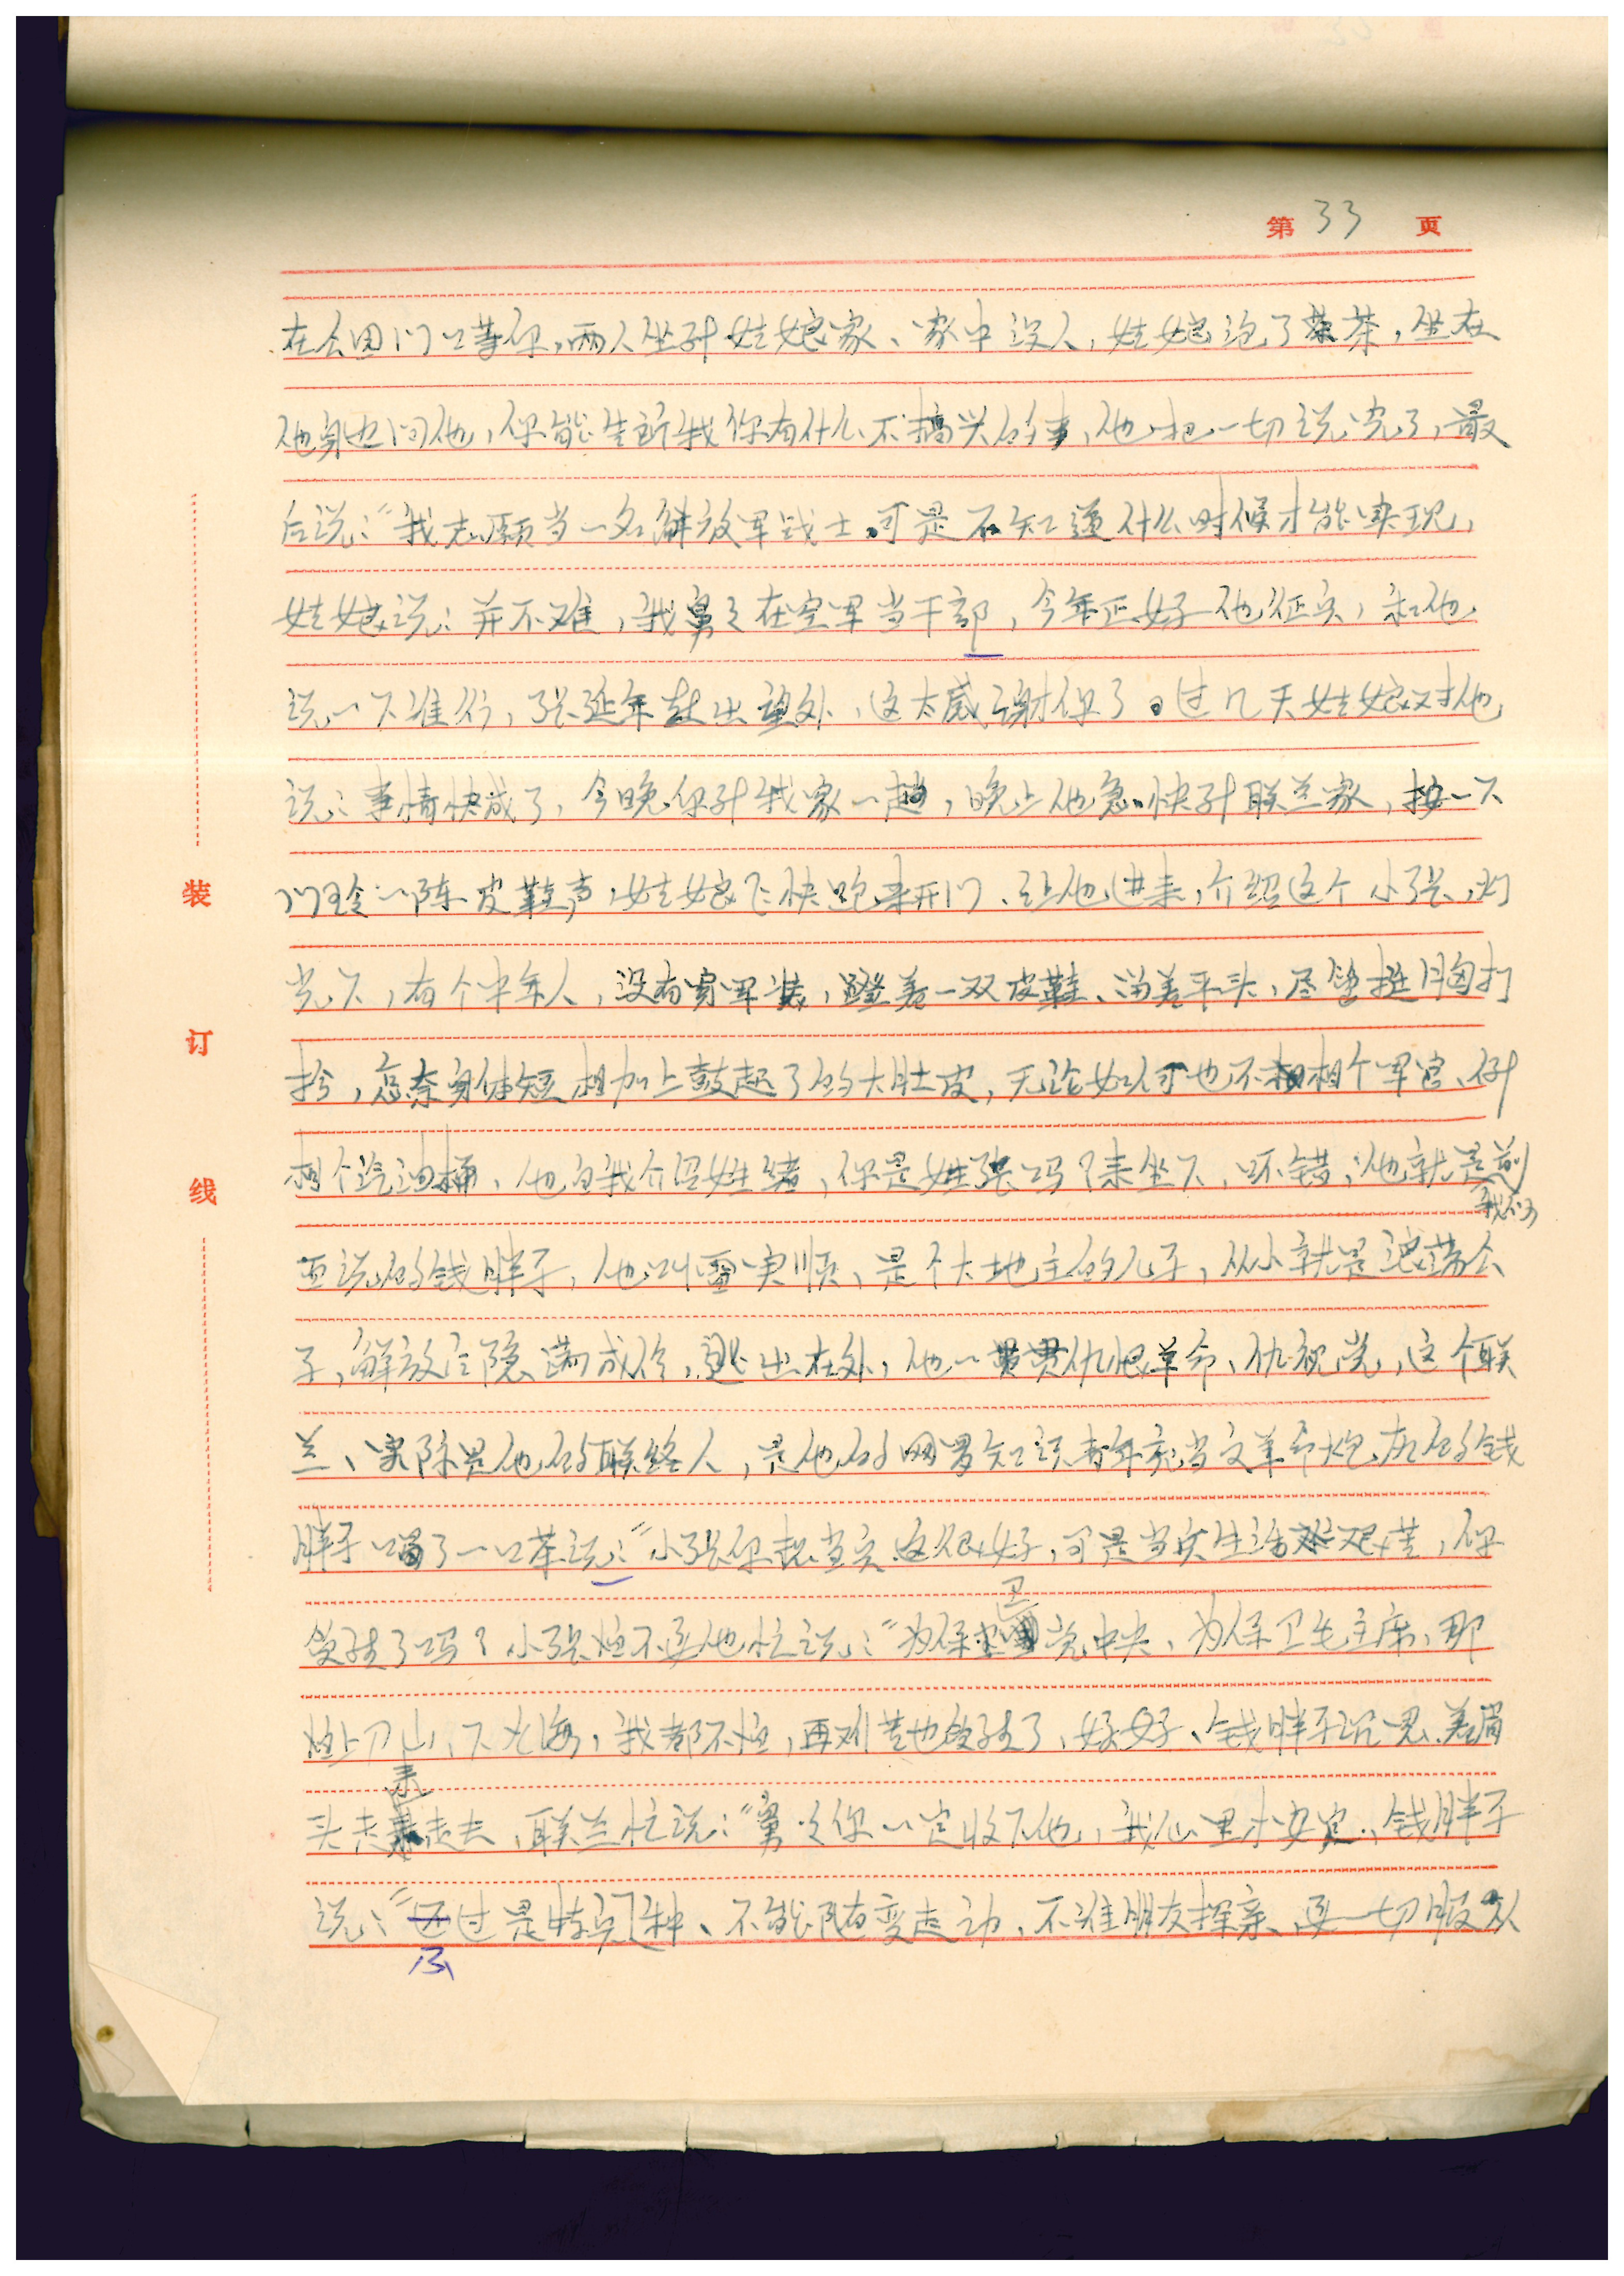 第 33 页
在公园门口等你，两人坐到姑娘家、家中没人，姑娘泡了茶，坐在
他身边问他，你能告诉我你有什么不搞兴的事，他把一切说完了，最
后说：“我志愿当一名解放军战士，可是不知道什么时候才能实现，
姑娘说：并不难，我舅父在空军当干部，今年正好他征兵，和他
说一下准行，张延年喜出望外，这太感谢你了。过几天姑娘对他
说：事情快成了，今晚你到我家一趟，晚上他急快到联兰家，按一下
门玲一阵皮鞋声，姑娘飞快跑来开门、让他进来，介绍这个小张，灯
光下，有个中年人，没有穿军装，蹬着一双皮鞋、留着平头，尽管挺胸打
扮，怎奈身体短粗加上鼓起了的大肚皮，无论如何也不相个军官、到
相个汽油桶，他自我介绍姓绪，你是姓张吗？来坐下，不错，他就是前
我们
面说的钱胖子，他叫雷兴顺、是个大地主的儿子，从小就是浪荡公
子，解放后隐满成份，逃出在外，他一贯仇恨革命、仇视党，这个联
兰、实际是他的联络人，是他的网罗知识青年充当文革命炮灰的钱
胖子喝了一口茶说：“小张你想当兵这很好，可是当兵生活艰苦，你
受得了吗？小张恐不要他忙说：“为保卫党中央、为保卫毛主席，那
怕上刀山、下火海，我都不怕，再难苦也受得了，好好、钱胖子沉思着眉
头走来走去，联兰忙说：“舅父你一定收下他，我心里才安宜，钱胖子
说：“不过是特兵种、不能随变走动、不准朋友探亲、要一切服从
装
订
线